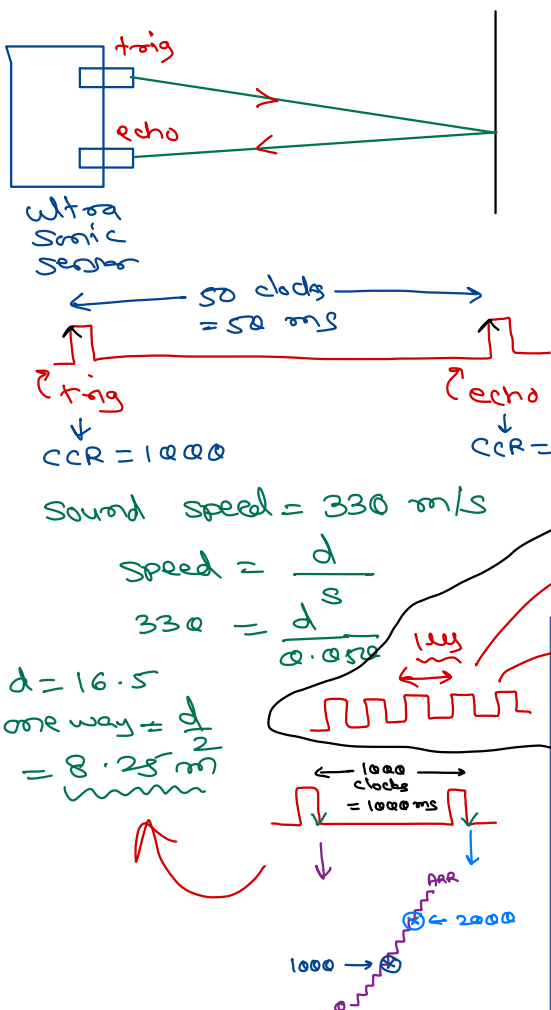 trig
echo
ultra
sonic
sensor
50 clocks
= 50 ms
trig
echo
CCR = 1000
CCR =
sound speed = 330 m/s
speed = d
s
330 = d
0.050
d = 16.5
one way = d
2
= 8.25 m
1000
clocks
= 1000 ms
ARR
2000
1000
0